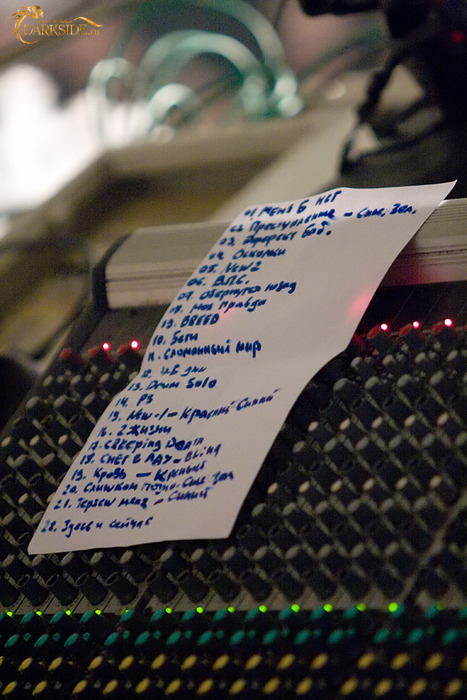 DARKSIDE.ru
01 МЕНЯ Б НЕТ
02. Преступление - Сине, Зел.
03. Эффект Баб.
04. Осколки
05. New 2
06. В.П.С.
07. Обернутся назад
08. Моя правда
09. BREED
10. Беги
11. СЛОМАННЫЙ МИР
12.
13. Drum Solo
14. PS
15. New-1 - Красный-Синий
16. 2 ЖИЗНИ
17.
18. СНЕГ В АДУ - Blind
19. Кровь - Красный
20. Слишком поздно - Сине Зел
21. Теряем меня - Синий
22. Здесь и сейчас